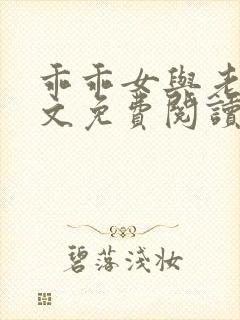 乖乖女與老
文免費閱讀
碧落淺妝